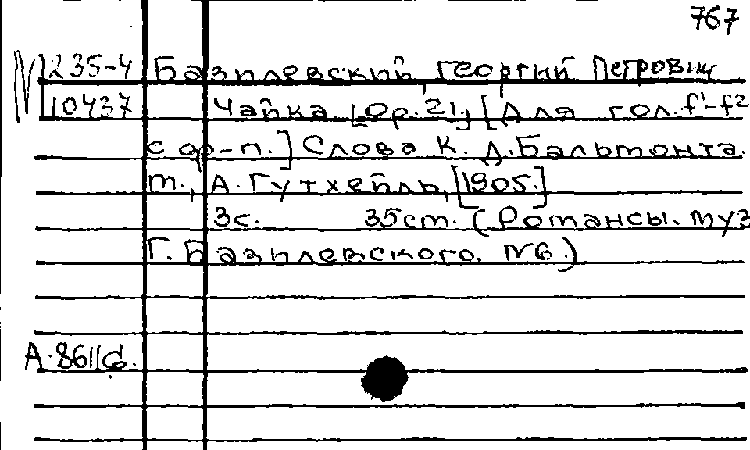 767
М 235-4 Базилевский, Георгий Петрович
10437 Чайка [Op. 21], [Для гол. f¹-f²
с ф-п.] Слова К. Д. Бальмонта.
М., А. Гутхейль, [1905.]
3с. 35см. (Романсы. Муз
Г. Базилевского. №6.)
А.8611